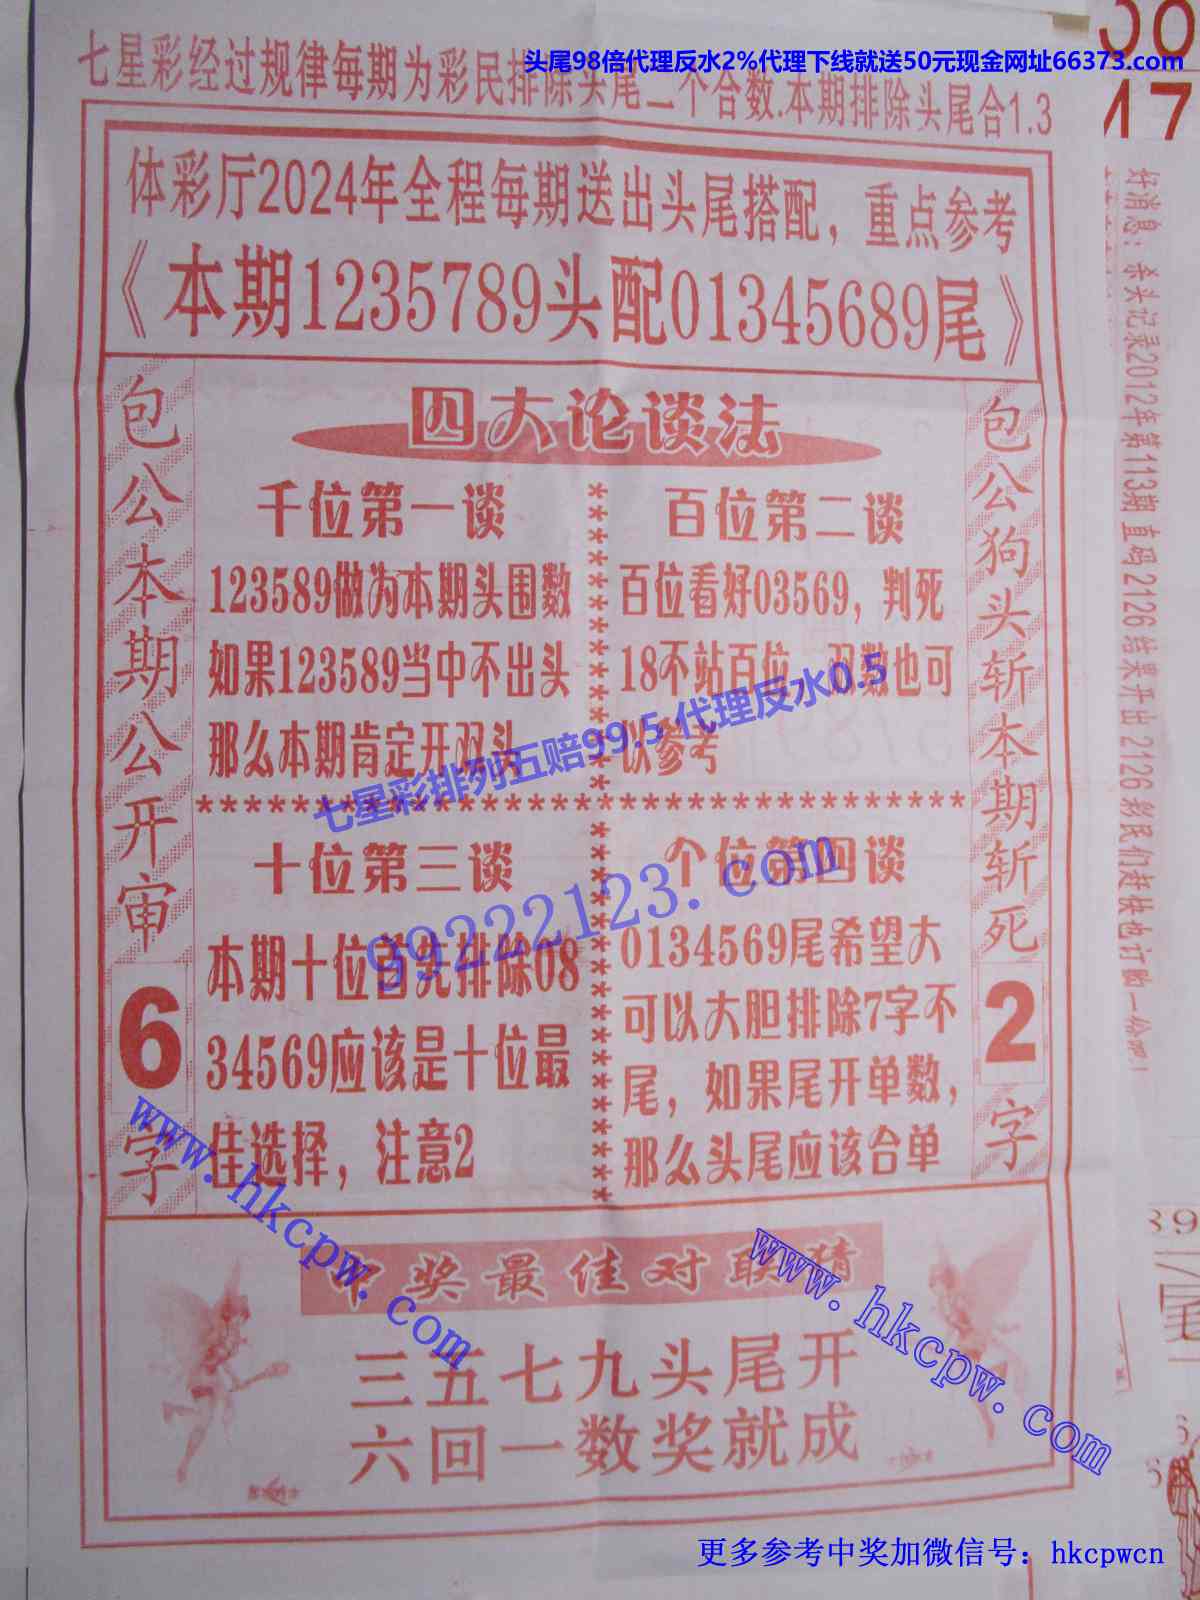 头尾98倍代理反水2%代理下线就送50元现金网址66373.com
七星彩经过规律每期为彩民排除头尾二个合数.本期排除头尾合1.3
体彩厅2024年全程每期送出头尾搭配，重点参考
《本期1235789头配01345689尾》
包公本期公开审6字
四大论谈法
千位第一谈
123589做为本期头围数
如果123589当中不出头
那么本期肯定开双头
百位第二谈
百位看好03569，判死
18不站百位，双数也可
以参考
七星彩排列五赔99.5代理反水0.5
99222123.com
十位第三谈
本期十位首先排除08
34569应该是十位最
佳选择，注意2
个位第四谈
0134569尾希望大
可以大胆排除7字不
尾，如果尾开单数，
那么头尾应该合单
包公狗头斩本期斩死2字
www.hkcpw.com
www.hkcpw.com
中奖最佳对联猜
三五七九头尾开
六回一数奖就成
好消息：杀头记录2012年第113期直码2126结果开出2126彩民们赶快也订购一份吧！
08
17
39
尾
6
6
更多参考中奖加微信号：hkcpwcn